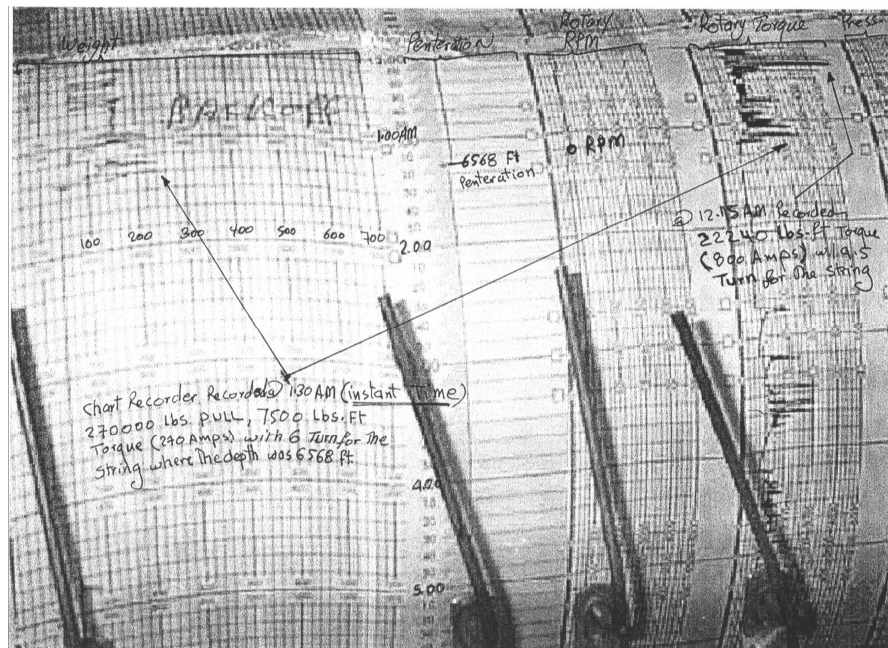 Weight
Penteration
Rotary
RPM
Rotary Torque
Press
1.00 AM
6568 Ft
Penteration
RPM
100 200 300 400 500 600 700
2.00
@ 12.15 AM Recorded
22240 lbs.ft Torque
(800 Amps) w/ 9.5
Turn for the string
Chart Recorder Recorded @ 1:30 AM (instant Time)
270000 lbs. PULL, 7500 lbs.ft
Torque (270 Amps) with 6 Turn for the
string where the depth was 6568 ft.
4.00
5.00